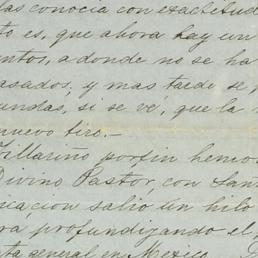 las conocia con exactitud
to es, que ahora hay un
ntos, a donde no se ha
asados, y mas tarde se
undas, si se vé, que la
nuevo tiro.—
Villarino por fin hemos
Divino Pastor, con San
cacion salió un hilo
rá profundizando el
ta general en Mexico.